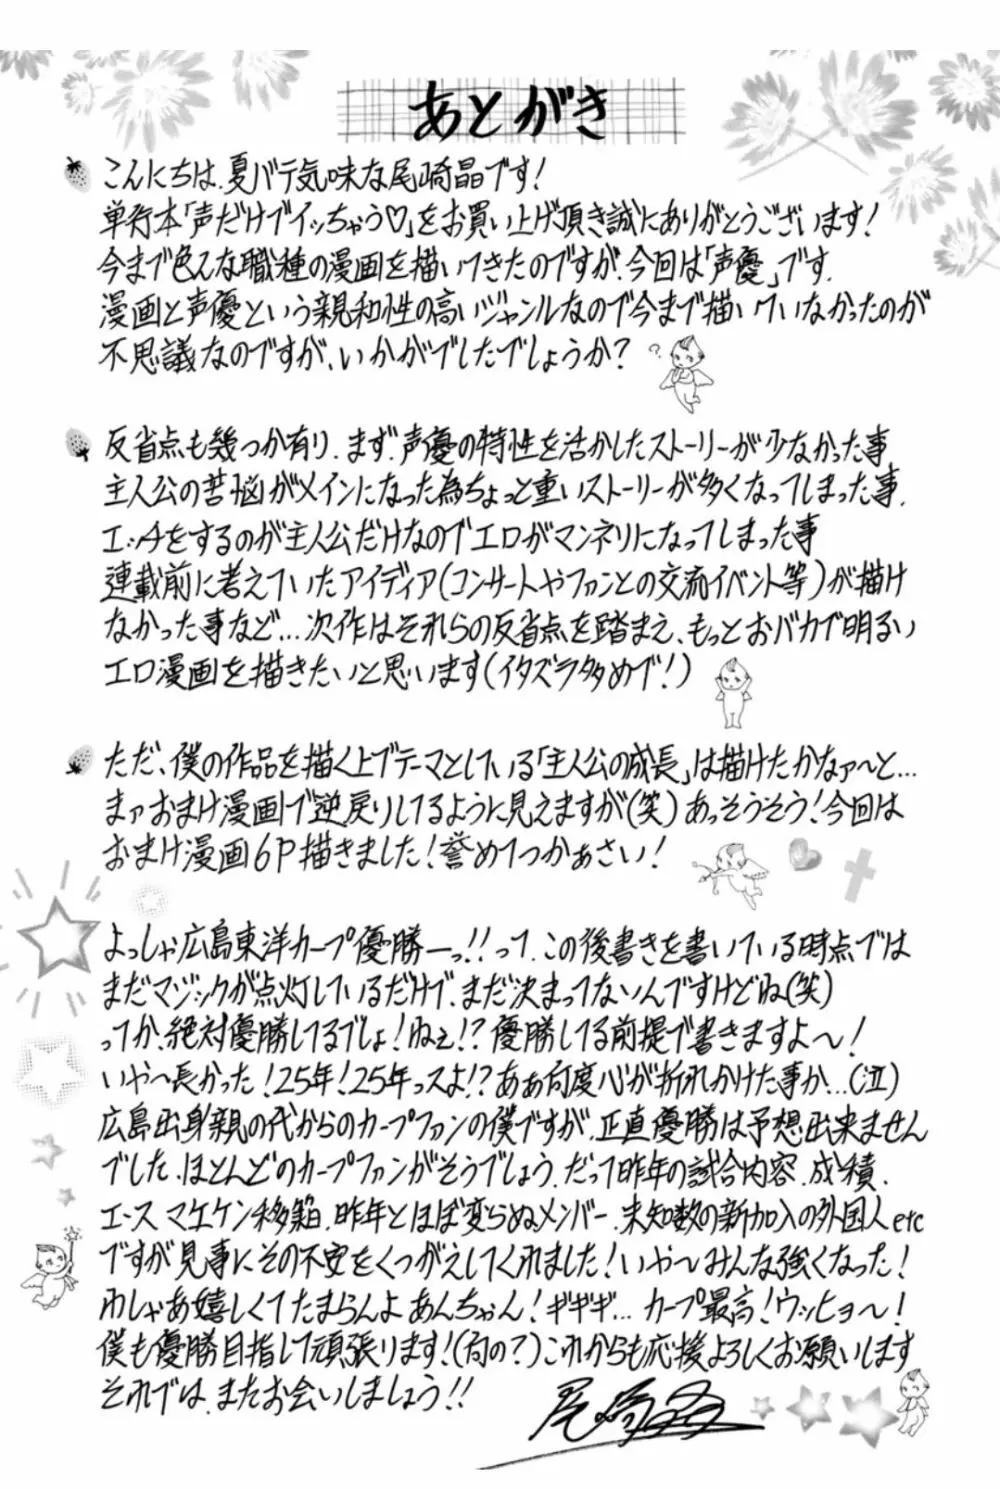 あとがき
こんにちは、夏バテ気味な尾崎晶です!
単行本「声だけでイッちゃう♡」をお買い上げ頂き誠にありがとうございます!
今まで色んな職種の漫画を描いてきたのですが、今回は「声優」です。
漫画と声優という親和性の高いジャンルなので今まで描いていなかったのが
不思議なのですが、いかがでしたでしょうか?
反省点も幾つか有り、まず声優の特性を活かしたストーリーが少なかった事
主人公の苦悩がメインになった為ちょっと重いストーリーが多くなってしまった事、
エッチをするのが主人公だけなのでエロがマンネリになってしまった事
連載前に考えていたアイディア(コンサートやファンとの交流イベント等)が描け
なかった事など…次作はそれらの反省点を踏まえ、もっとおバカで明るい
エロ漫画を描きたいと思います(イタズラ多めで!)
ただ、僕の作品を描く上でテーマとしている「主人公の成長」は描けたかなァ~と…
まァおまけ漫画で逆戻りしてるように見えますが(笑)あっそうそう!今回は
おまけ漫画6P描きました!誉めてつかぁさい!
よっしゃ広島東洋カープ優勝ーっ!!って、この後書きを書いている時点では
まだマジックが点灯しているだけで、まだ決まってないんですけどね(笑)
ってか、絶対優勝してるでしょ!ねェ!?優勝してる前提で書きますよ~!
いや~長かった!25年!25年っスよ!?あぁ何度心が折れかけた事か…(泣)
広島出身親の代からのカープファンの僕ですが、正直優勝は予想出来ません
でした、ほとんどのカープファンがそうでしょう、だって昨年の試合内容、成積、
エース マエケン移籍、昨年とほぼ変らぬメンバー、未知数の新加入の外国人etc
ですが見事にその不安をくつがえしてくれました!いや~みんな強くなった!
わしゃあ嬉しくてたまらんよあんちゃん!ギギギ…カープ最高!ウッヒョ~!
僕も優勝目指して頑張ります!(何の?)これからも応援よろしくお願いします
それでは、またお会いしましょう!!
尾崎晶